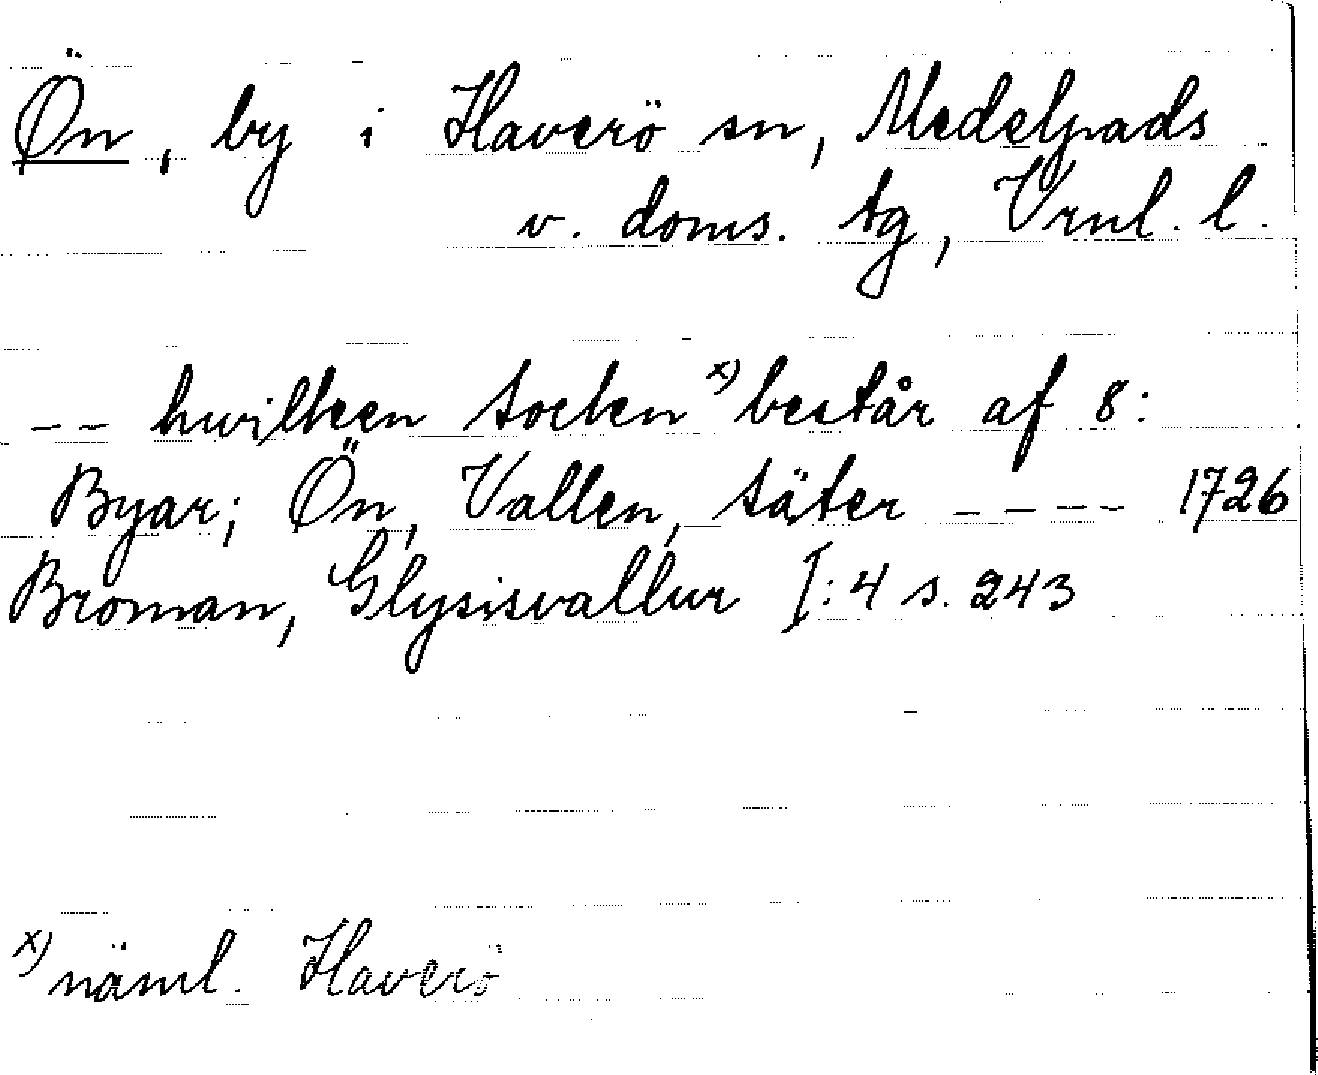 Ön, by i Haverö sn, Medelpads
v. doms. tg, Vrnl. l.
-- hwilken socken x) består af 8:
Byar; Ön, Vallen, säter ---- 1726
Broman, Glysisvallur I:4 s. 243
x) näml. Haverö